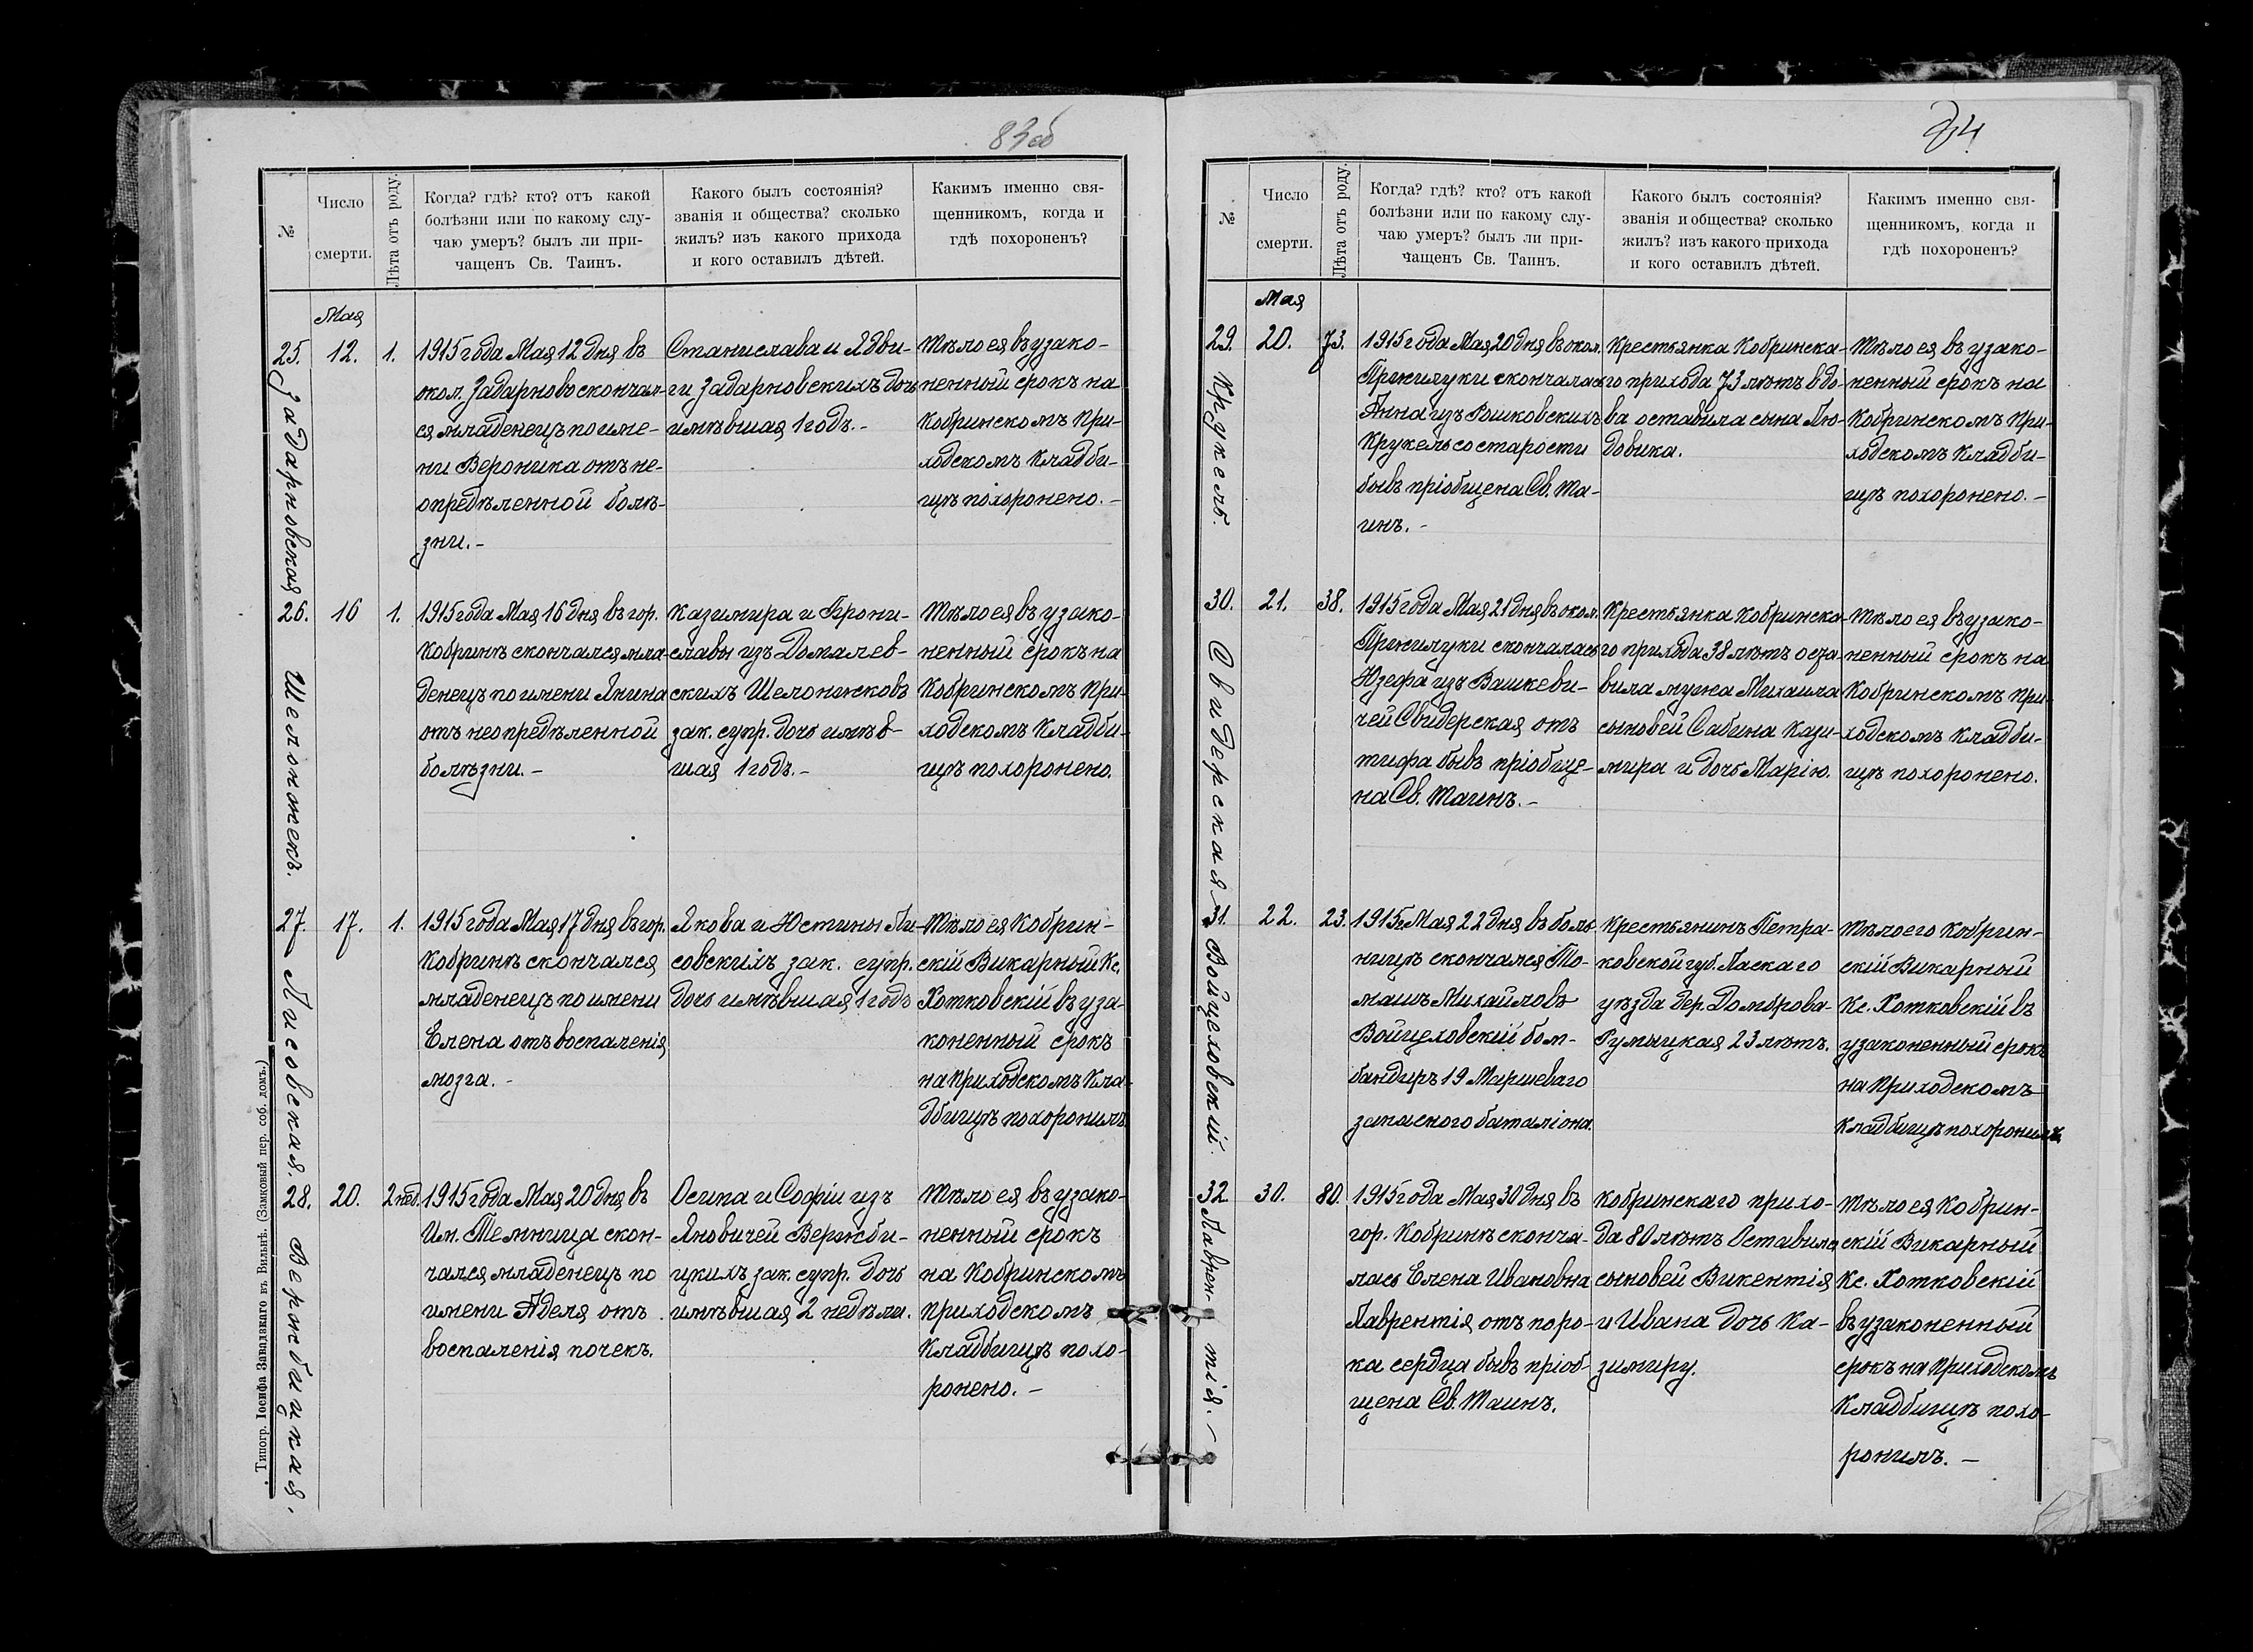 83 об
№
Число
смерти.
Лѣта отъ роду.
Когда? гдѣ? кто? отъ какой
болѣзни или по какому слу-
чаю умеръ? былъ ли при-
чащенъ Св. Таинъ.
Какого былъ состоянія?
званія и общества? сколько
жилъ? изъ какого прихода
и кого оставилъ дѣтей.
Какимъ именно свя-
щенникомъ, когда и
гдѣ похороненъ?
Мая
25.
Задарновская
12.
1.
1915 года Мая 12 дня въ
окол. Задарново скончал-
ся младенецъ по име-
ни Вероника отъ не-
опредѣленной болѣ-
зни.-
Станислава и Ядви-
ги Задарновскихъ дочь
имѣвшая 1 годъ.-
Тѣло ея въ узако-
ненный срокъ на
Кобринскомъ При-
ходскомъ Кладби-
щѣ похоронено.-
26.
Шелонжекъ.
16
1.
1915 года Мая 16 дня въ гор.
Кобринѣ скончался мла-
денецъ по имени Янина
отъ неопредѣленной
болѣзни.-
Казимира и Брони-
славы изъ Домалев-
скихъ Шелонжковъ
зак. супр. дочь имѣв-
шая 1 годъ.-
Тѣло ея въ узако-
ненный срокъ на
Кобринскомъ При-
ходскомъ Кладби-
щѣ похоронено.
27.
Лисовская.
17.
1.
1915 года Мая 17 дня въ гор.
Кобринѣ скончался
младенецъ по имени
Елена отъ воспаленія
мозга.-
Якова и Юстины Ли-
совскихъ зак. супр.
дочь имѣвшая 1 годъ
Тѣло ея Кобрин-
скій Викарный Кс.
Хотковскій въ уза-
коненный срокъ
на Приходскомъ Кла-
дбищѣ похоронилъ.
28.
Вержбицкая.
20.
2 нед.
1915 года Мая 20 дня въ
Им. Темница скон-
чался младенецъ по
имени Аделя отъ
воспаленія почекъ.
Осипа и Софіи изъ
Яновичей Вержби-
цкихъ зак. супр. дочь
имѣвшая 2 недѣли.
Тѣло ея въ узако-
ненный срокъ
на Кобринскомъ
приходскомъ
Кладбищѣ похо-
ронено.-
Типогр. Іосифа Завадзкаго въ Вильнѣ. (Замковый пер. соб. домъ.)
84
№
Число
смерти.
Лѣта отъ роду.
Когда? гдѣ? кто? отъ какой
болѣзни или по какому слу-
чаю умеръ? былъ ли при-
чащенъ Св. Таинъ.
Какого былъ состоянія?
званія и общества? сколько
жилъ? изъ какого прихода
и кого оставилъ дѣтей.
Какимъ именно свя-
щенникомъ, когда и
гдѣ похороненъ?
Мая
29.
Крукель.
20.
73.
1915 года Мая 20 дня въ окол.
Прижилуки скончалась
Анна изъ Рошковскихъ
Крукель со старости
бывъ пріобщена Св. Та-
инъ.-
Крестьянка Кобринска-
го прихода 73 лѣтъ вдо-
ва оставила сына Лю-
довика.
Тѣло ея въ узако-
ненный срокъ на
Кобринскомъ При-
ходскомъ Кладби-
щѣ похоронено.-
30.
Свидерская
21.
38.
1915 года Мая 21 дня въ окол.
Прижилуки скончалась
Юзефа изъ Вашкеви-
чей Свидерская отъ
тифа бывъ пріобще-
на Св. Таинъ.-
Крестьянка Кобринска-
го прихода 38 лѣтъ оста-
вила мужа Михаила
сыновей Сабина Кази-
мира и дочь Марію.
Тѣло ея въ узако-
ненный срокъ на
Кобринскомъ При-
ходскомъ Кладби-
щѣ похоронено.
31.
Войцеховскій.
22.
23.
1915 г. Мая 22 дня въ боль-
ницѣ скончался То-
машъ Михайловъ
Войцеховскій бом-
бандиръ 19 Маршеваго
запаского баталіона.
Крестьянинъ Петра-
ковской губ. Ласкаго
уѣзда дер. Домброва-
Румыцкая 23 лѣтъ.
Тѣло его Кобрин-
скій Викарный
Кс. Хотковскій въ
узаконенный срокъ
на Приходскомъ
Кладбищѣ похоронилъ.
32
Лаврен-
тія.-
30.
80.
1915 года Мая 30 дня въ
гор. Кобринѣ сконча-
лась Елена Ивановна
Лаврентія отъ поро-
ка сердца бывъ пріоб-
щена Св. Таинъ.
Кобринскаго прихо-
да 80 лѣтъ Оставила
сыновей Викентія
и Ивана дочь Ка-
зимиру.
Тѣло ея Кобрин-
скій Викарный
Кс. Хотковскій
въ узаконенный
срокъ на Приходскомъ
Кладбищѣ похо-
ронилъ.-